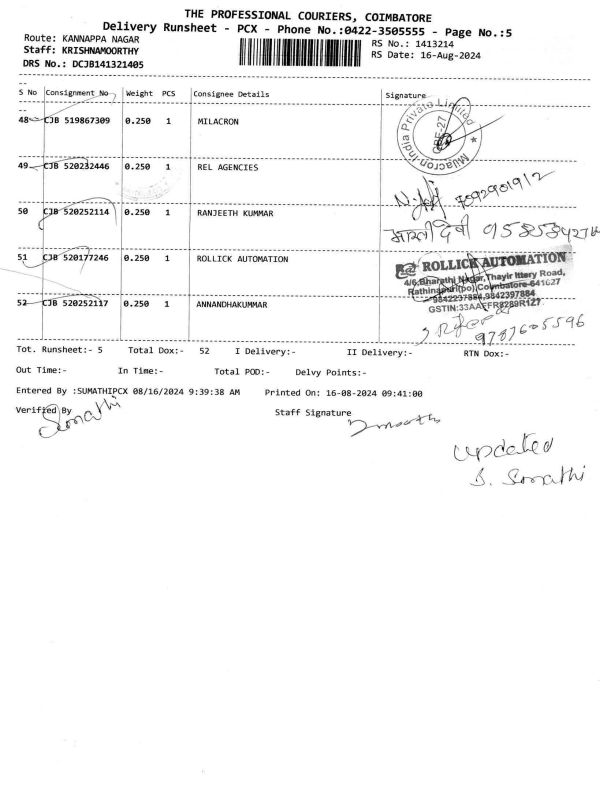 THE PROFESSIONAL COURIERS, COIMBATORE
Delivery Runsheet - PCX - Phone No.:0422-3505555 - Page No.:5
Route: KANNAPPA NAGAR
RS No.: 1413214
Staff: KRISHNAMOORTHY
RS Date: 16-Aug-2024
DRS No.: DCJB141321405
S No Consignment No Weight PCS Consignee Details Signature
48 CJB 519867309 0.250 1 MILACRON
Milacron India Private Limited
49 CJB 520232446 0.250 1 REL AGENCIES
7092901912
50 CJB 520252114 0.250 1 RANJEETH KUMMAR
51 CJB 520177246 0.250 1 ROLLICK AUTOMATION
ROLLICK AUTOMATION
4/6, Bharathi Nagar, Thayir Ittery Road,
Rathinapuri(po), Coimbatore-641627
9842237884, 9842397884
GSTIN:33AAFFR8289R1Z7
52 CJB 520252117 0.250 1 ANNANDHAKUMMAR
9787605596
Tot. Runsheet:- 5 Total Dox:- 52 I Delivery:- II Delivery:- RTN Dox:-
Out Time:- In Time:- Total POD:- Delvy Points:-
Entered By :SUMATHIPCX 08/16/2024 9:39:38 AM Printed On: 16-08-2024 09:41:00
Verified By
Staff Signature
Updated